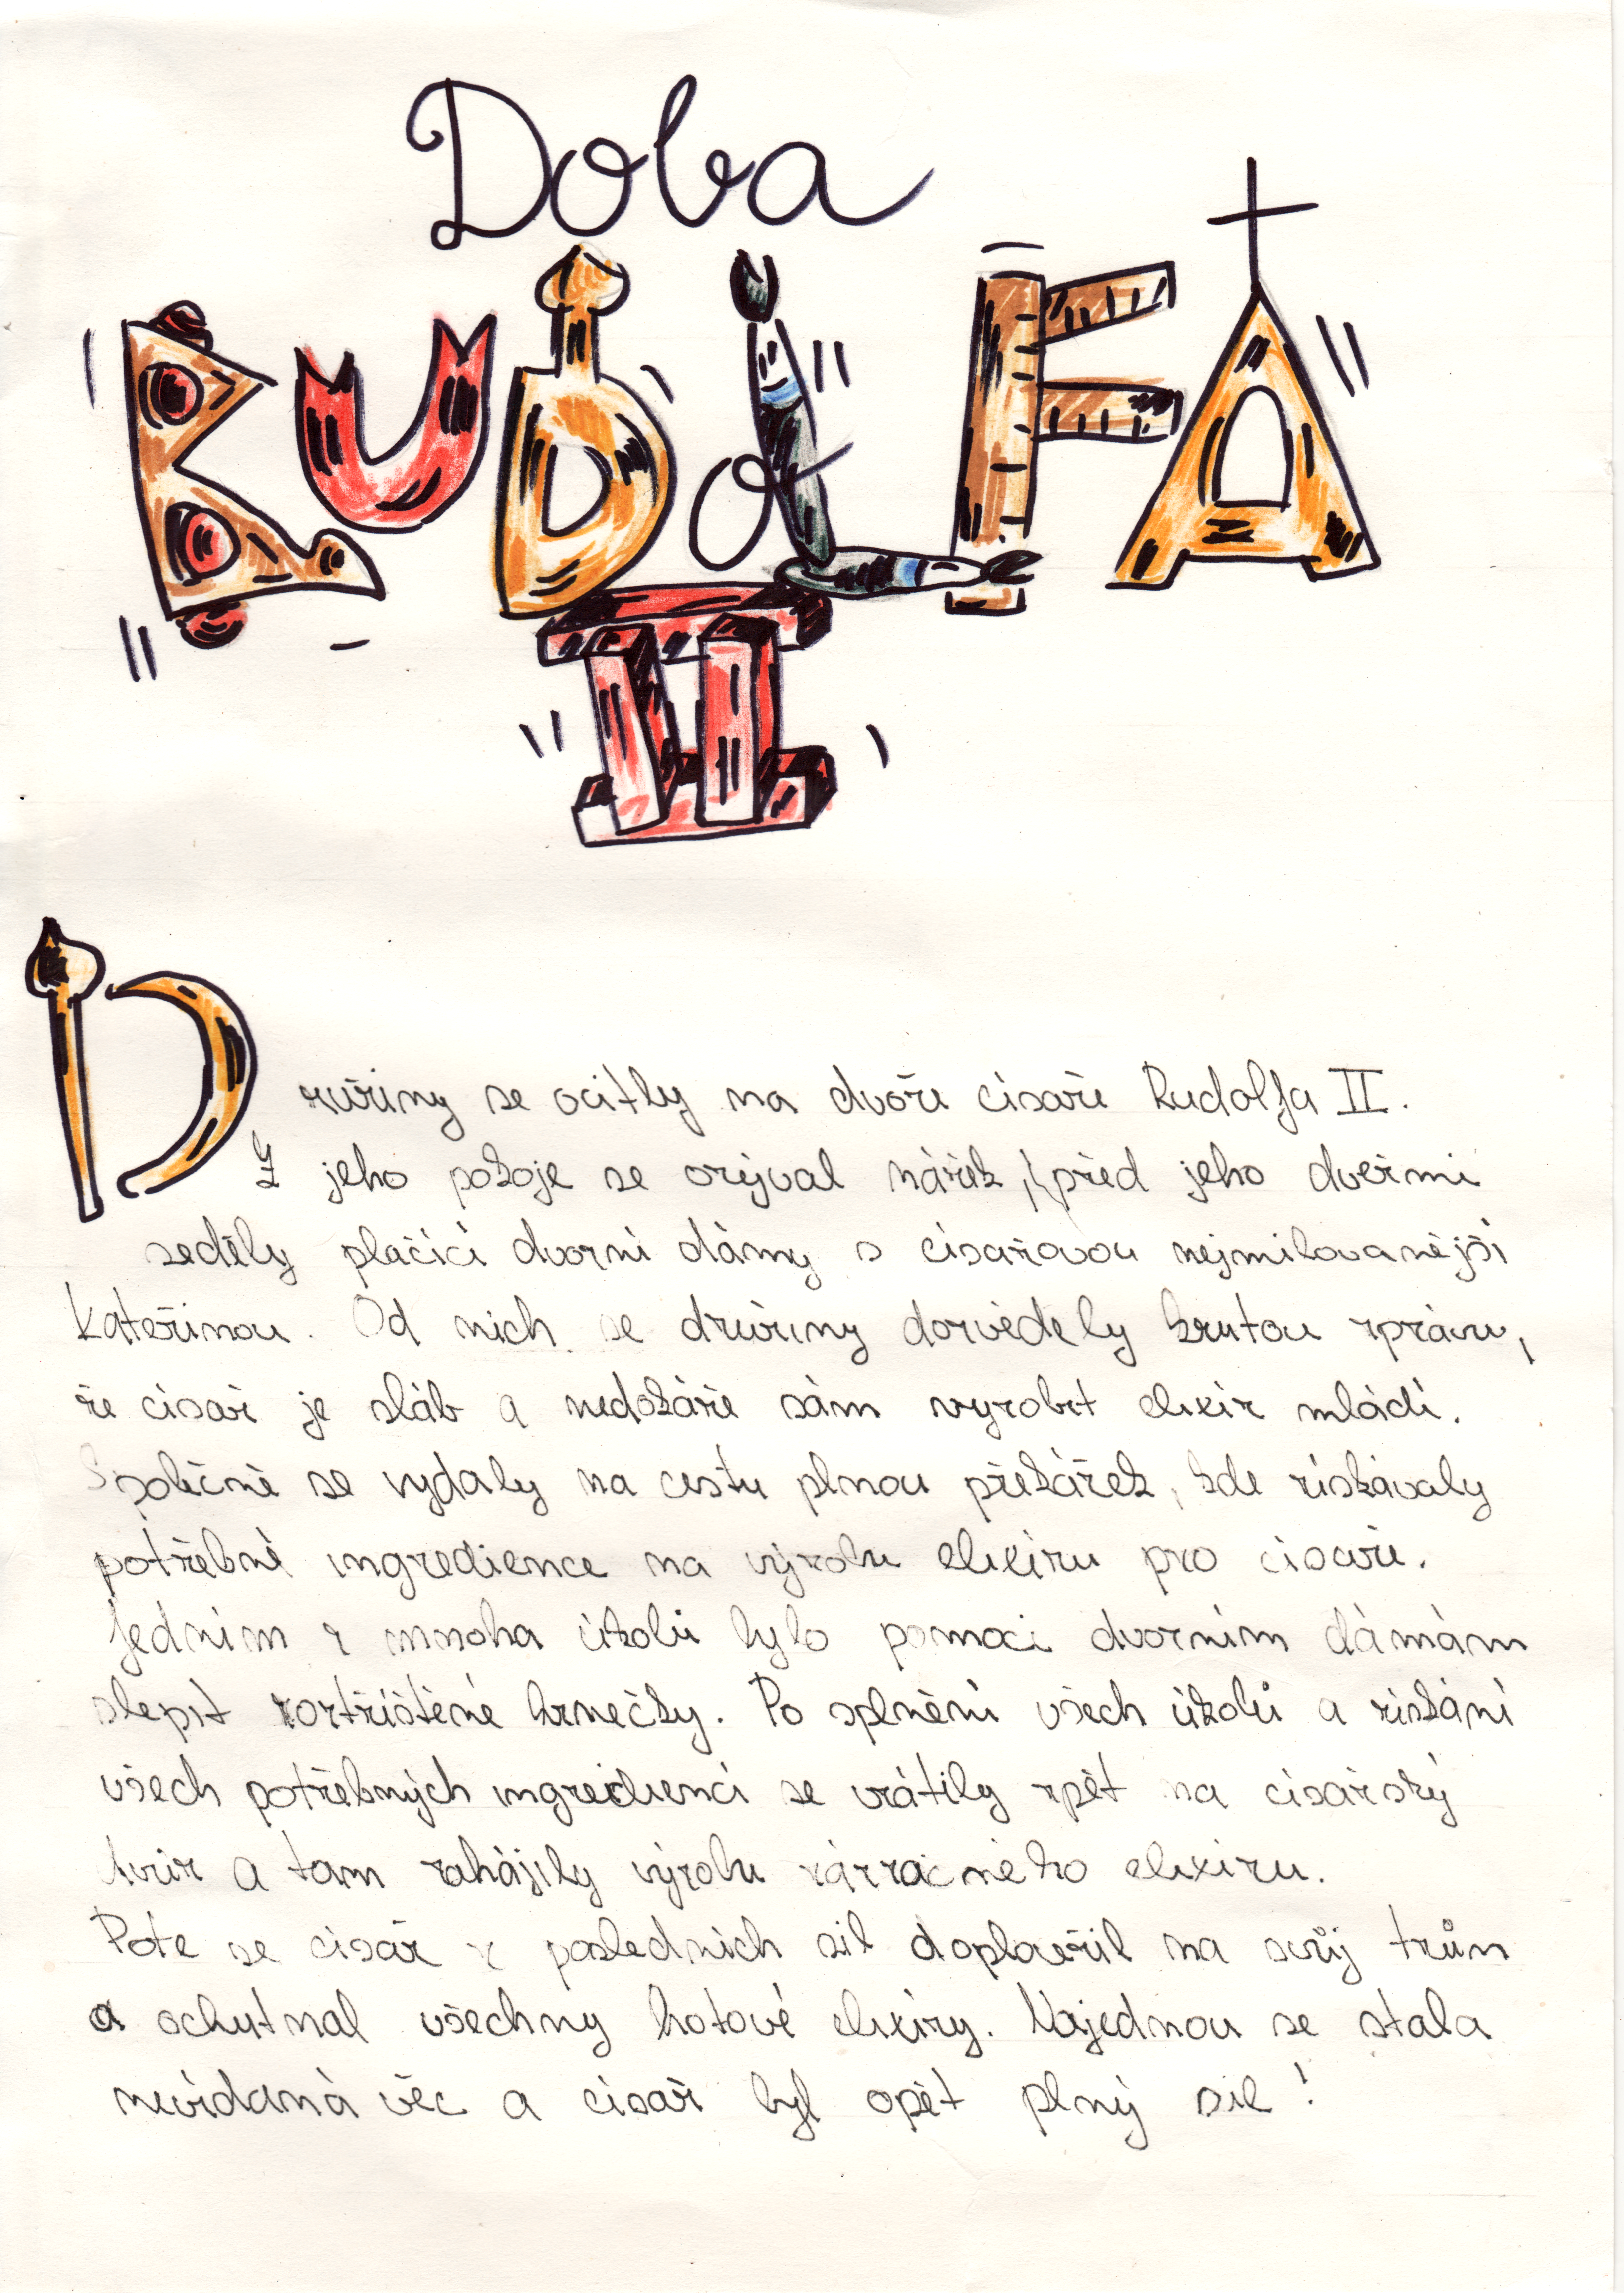 Doba
RUDOLFA
II
Družiny se ocitly na dvoře císaře Rudolfa II.
Z jeho pokoje se ozýval nářek, před jeho dveřmi
seděly plačící dvorní dámy s císařovou nejmilovanější
Kateřinou. Od nich se družiny dozvěděly krutou zprávu,
že císař je sláb a nedokáže sám vyrobit elixír mládí.
Společně se vydaly na cestu plnou překážek, kde získávaly
potřebné ingredience na výrobu elixíru pro císaře.
Jedním z mnoha úkolů bylo pomoci dvorním dámám
slepit roztříštěné hrnečky. Po splnění všech úkolů a získání
všech potřebných ingrediencí se vrátily zpět na císařský
dvůr a tam zahájily výrobu zázračného elixíru.
Poté se císař z posledních sil doplazil na svůj trůn
a ochutnal všechny hotové elixíry. Najednou se stala
nevídaná věc a císař byl opět plný sil!